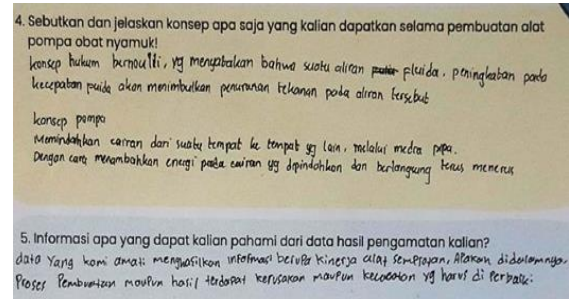 4. Sebutkan dan jelaskan konsep apa saja yang kalian dapatkan selama pembuatan alat
pompa obat nyamuk!
konsep hukum bernoulli, yg mengatakan bahwa suatu aliran fluida, peningkatan pada
kecepatan fluida akan menimbulkan penurunan tekanan pada aliran tersebut
konsep pompa
Memindahkan cairan dari suatu tempat ke tempat yg lain, melalui media pipa.
Dengan cara menambahkan energi pada cairan yg dipindahkan dan berlangsung terus menerus
5. Informasi apa yang dapat kalian pahami dari data hasil pengamatan kalian?
data Yang kami amati menghasilkan informasi berupa kinerja alat semprotan, Apakah didalamnya.
Proses Pembuatan maupun hasil terdapat kerusakan maupun kecacatan yg harus di Perbaiki